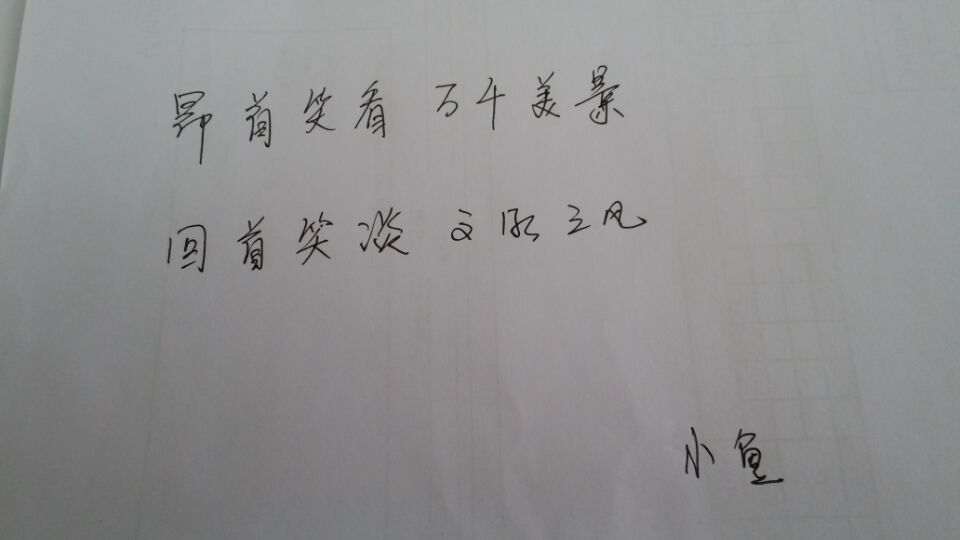 昂首笑看 万千美景
回首笑谈 文明之风
小鱼